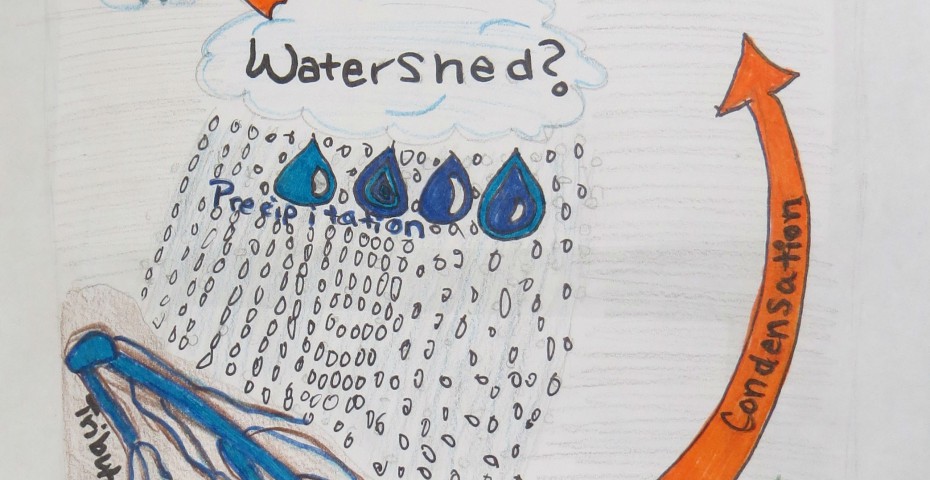 Watershed?
Precipitation
Condensation